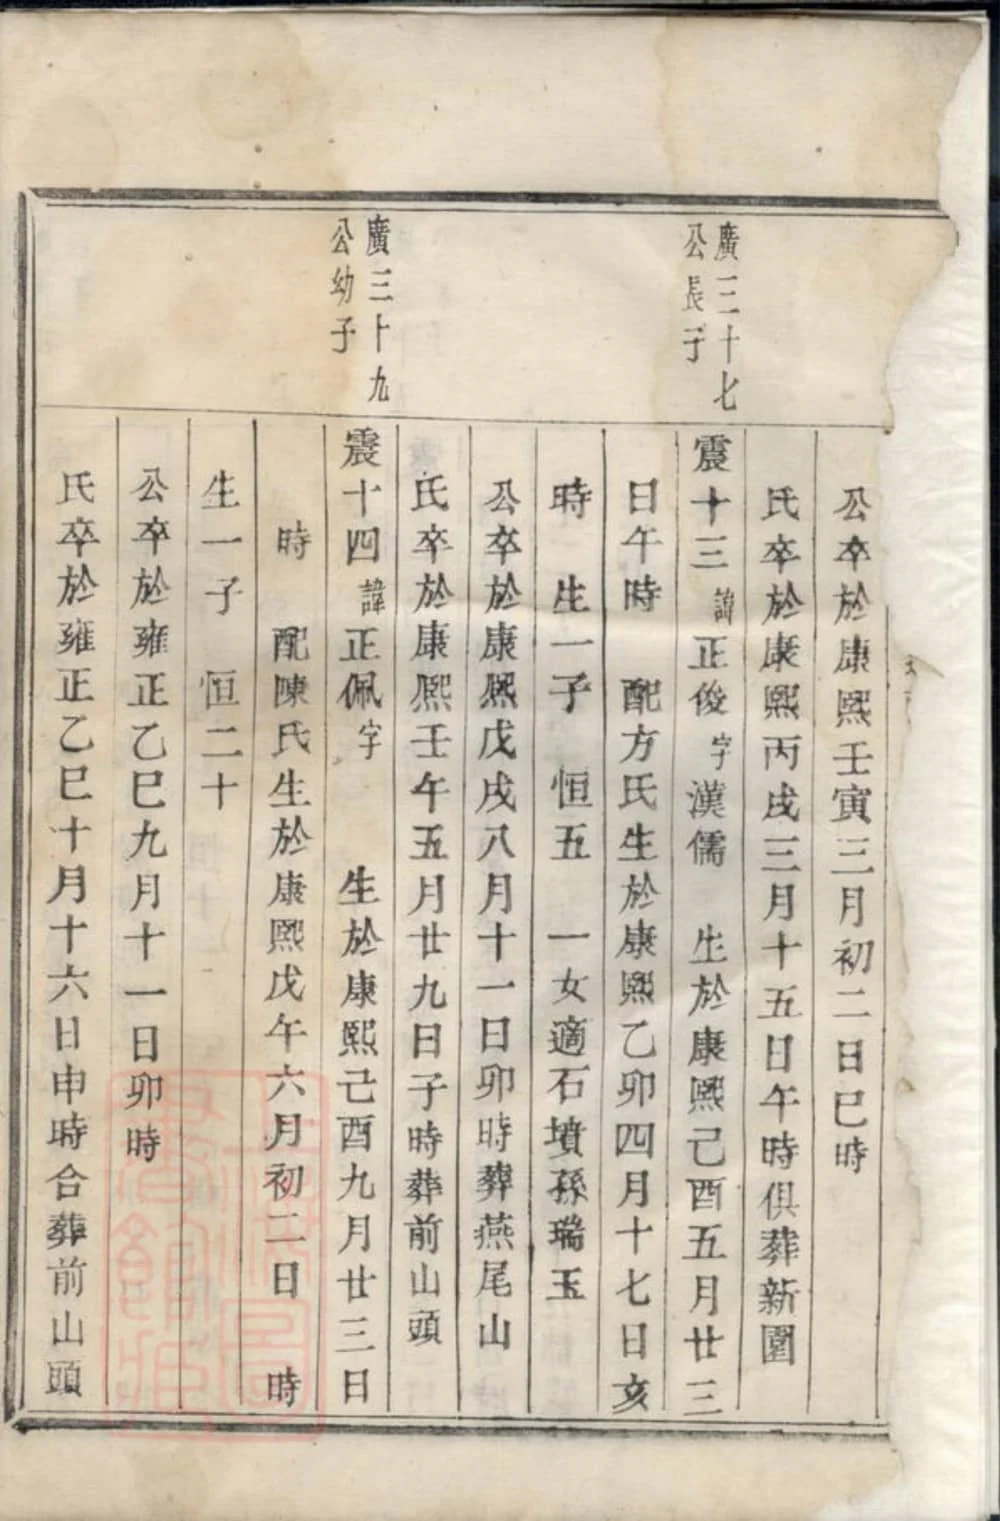 公卒於康熙壬寅三月初二日巳時
氏卒於康熙丙戌三月十五日午時俱葬新圍
廣三十七
公長子
震十三諱正俊字漢儒 生於康熙己酉五月廿三
日午時 配方氏生於康熙乙卯四月十七日亥
時 生一子 恒五 一女適石墳孫瑞玉
公卒於康熙戊戌八月十一日卯時葬燕尾山
氏卒於康熙壬午五月廿九日子時葬前山頭
廣三十九
公幼子
震十四諱正佩字 生於康熙己酉九月廿三日
時 配陳氏生於康熙戊午六月初二日 時
生一子 恒二十
公卒於雍正乙巳九月十一日卯時
氏卒於雍正乙巳十月十六日申時合葬前山頭